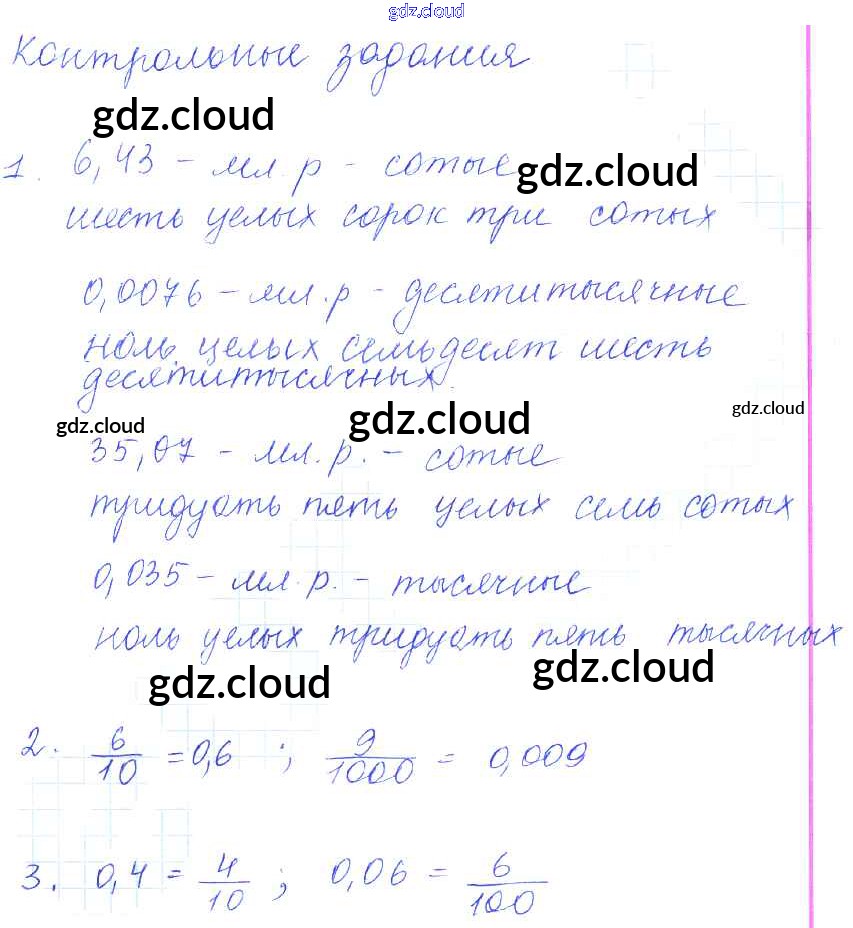 gdz.cloud
Контрольные задания
gdz.cloud
1. 6,43 – мл.р – сотые gdz.cloud
шесть целых сорок три сотых
0,0076 – мл.р – десятитысячные
ноль целых семьдесят шесть
десятитысячных.
gdz.cloud gdz.cloud gdz.cloud
35,07 – мл.р. – сотые
тридцать пять целых семь сотых
0,035 – мл.р. – тысячные
ноль целых тридцать пять тысячных
gdz.cloud gdz.cloud
2. 6/10 = 0,6 ; 9/1000 = 0,009
3. 0,4 = 4/10 ; 0,06 = 6/100